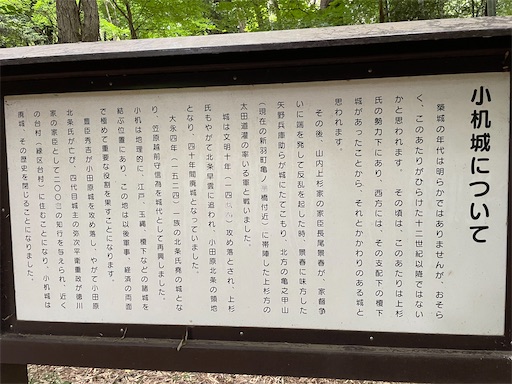 小机城について
築城の年代は明らかではありませんが、おそら
く、このあたりがひらけた十二世紀以降ではない
かと思われます。その頃は、このあたりは上杉
氏の勢力下にあり、西方には、その支配下の榎下
城があったことから、それとかかわりのある城と
思われます。
その後、山内上杉家の家臣長尾景春が、家督争
いに端を発して反乱を起した時、景春に味方した
矢野兵庫助らが城にたてこもり、北方の亀之甲山
(現在の新羽町亀ノ甲橋付近)に帯陣した上杉方の
太田道灌の率いる軍と戦いました。
城は文明十年(一四七八)攻め落とされ、上杉
氏もやがて北条早雲に追われ、小田原北条の領地
となり、四十年間廃城となっていました。
大永四年(一五二四)一族の北条氏堯の城とな
り、笠原越前守信為を城代として再興しました。
小机は地理的に、江戸、玉縄、榎下などの諸城を
結ぶ位置にあり、この地は以後軍事、経済の両面
で極めて重要な役割を果すことになります。
豊臣秀吉が小田原城を攻め落し、やがて小田原
北条氏が亡び、四代目城主の弥次平衛重政が徳川
家の家臣として二〇〇三の知行を与えられ、近く
の台村(緑区台村)に住むことになり、小机城は
廃城、その歴史を閉じることになりました。